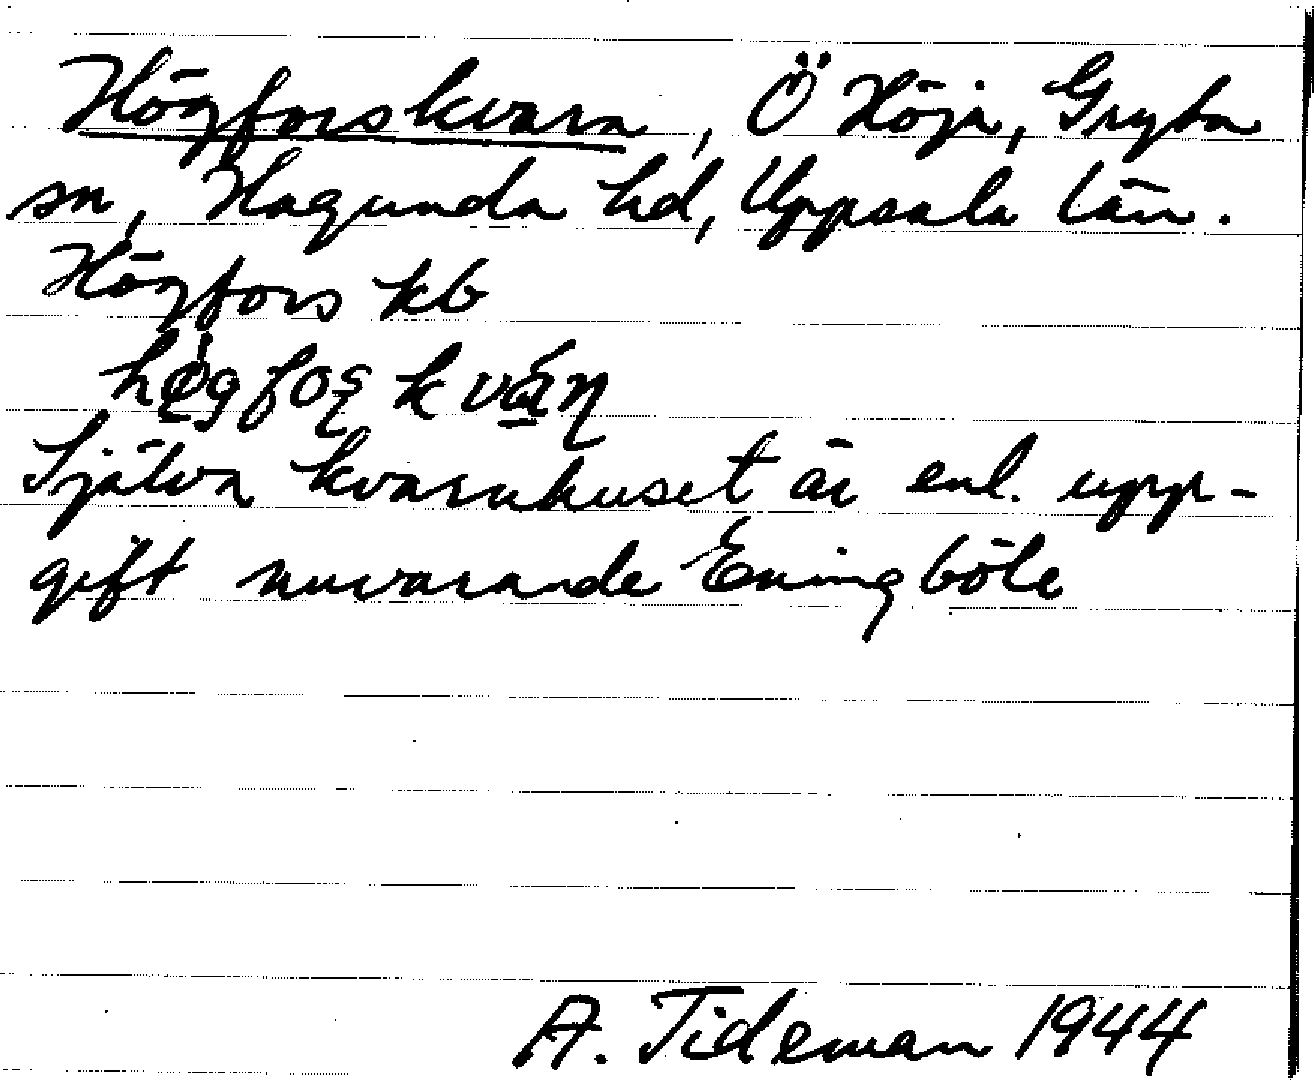 Högforskvarn, Ö Höja, Gryta
sn, Hagunda hd, Uppsala län.
Högfors kb
Själva kvarnhuset är enl. upp-
gift nuvarande Eningböle
A. Tideman 1944